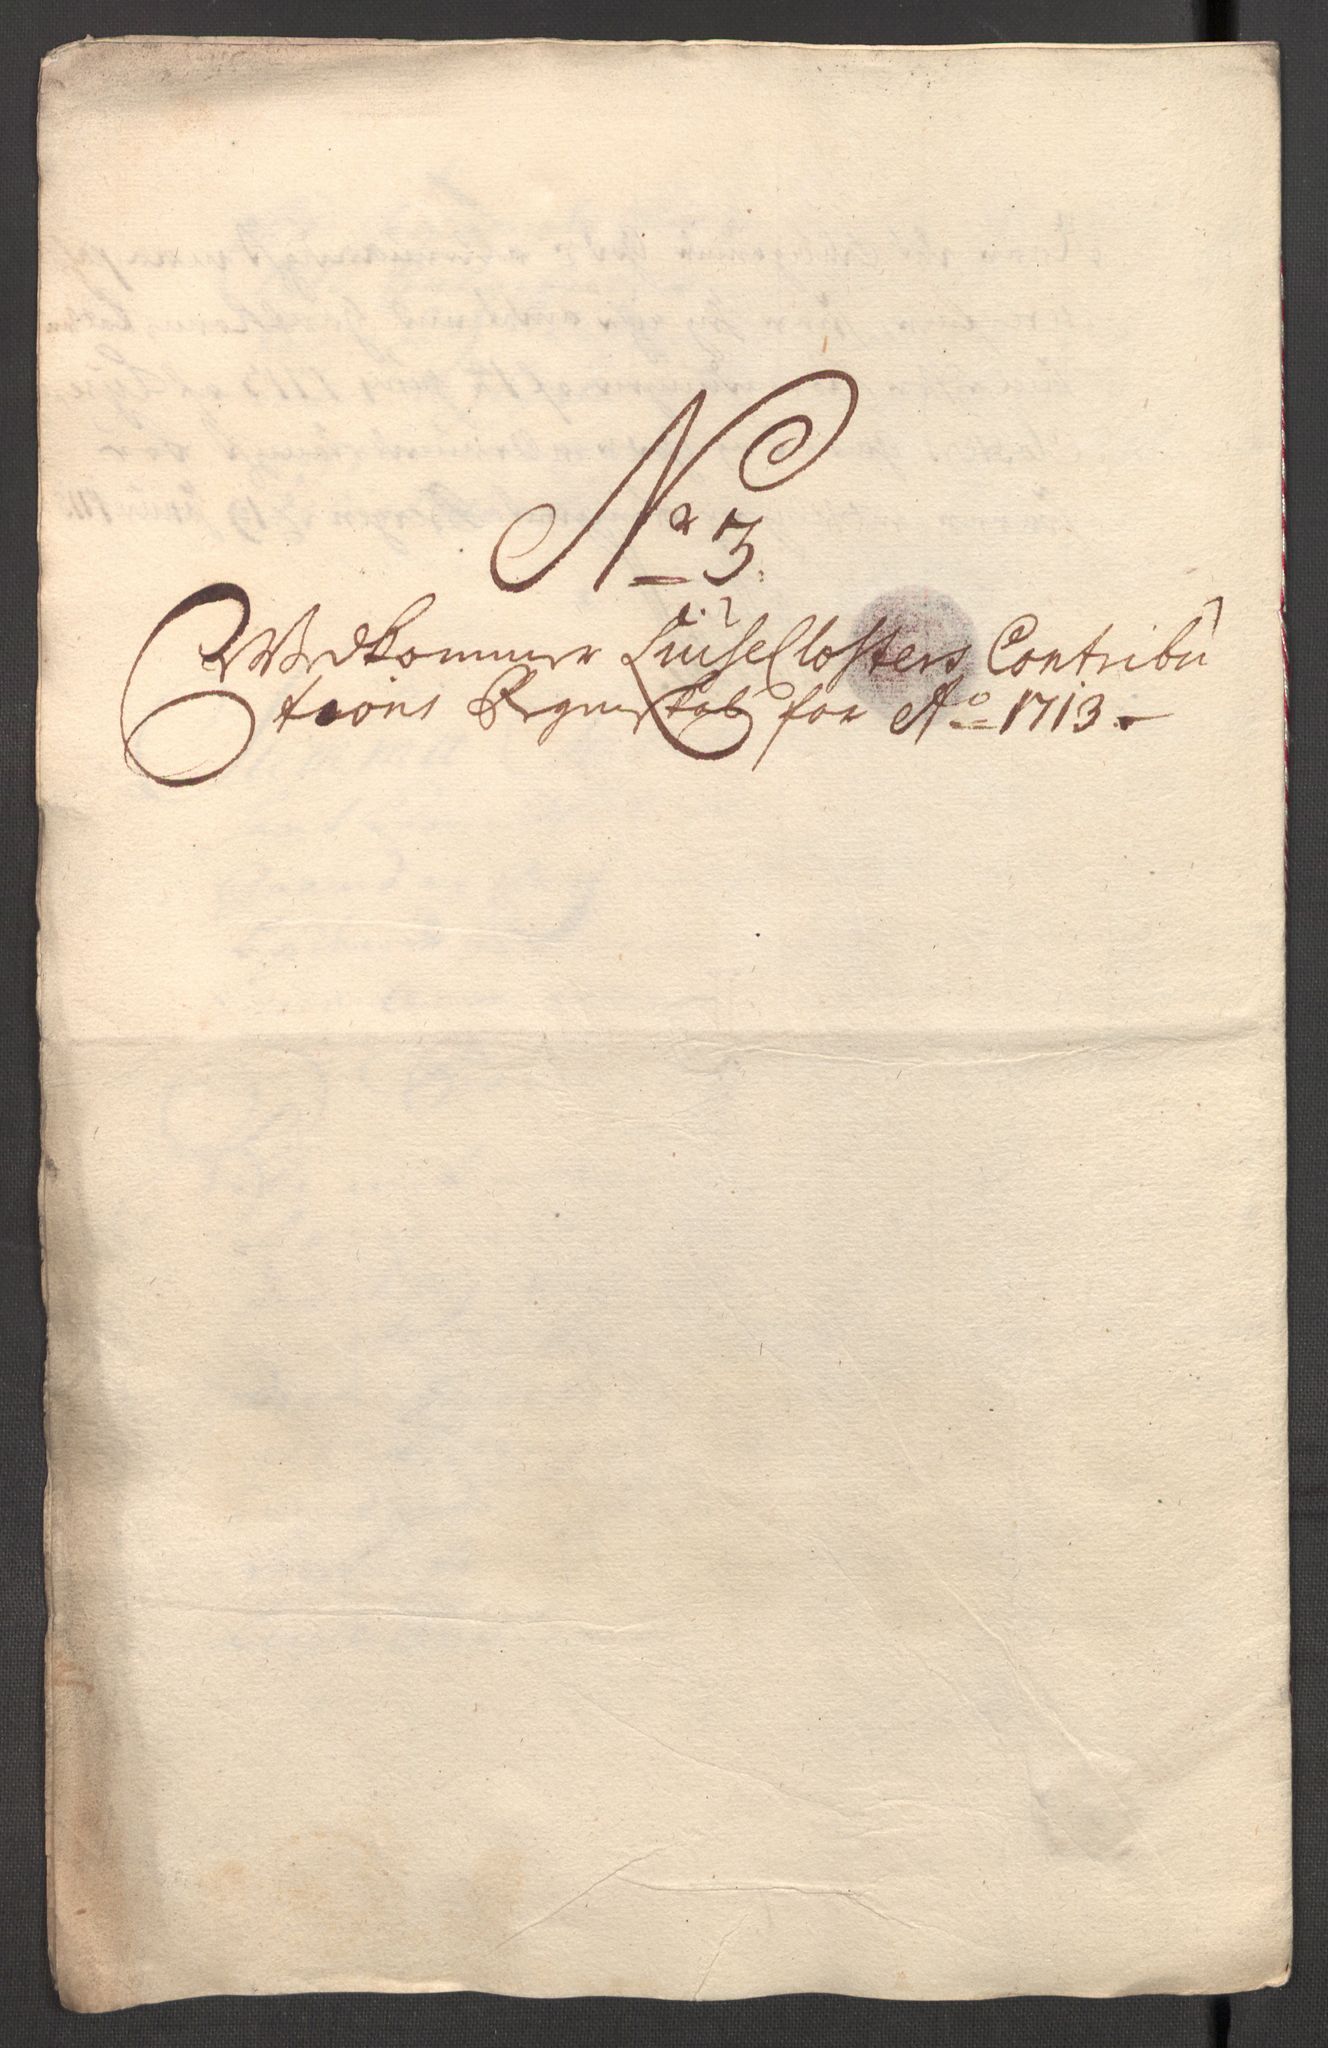 No 3.
Vedkommer Lüse Closters Contribu
tions Regnskab for Ao 1713.